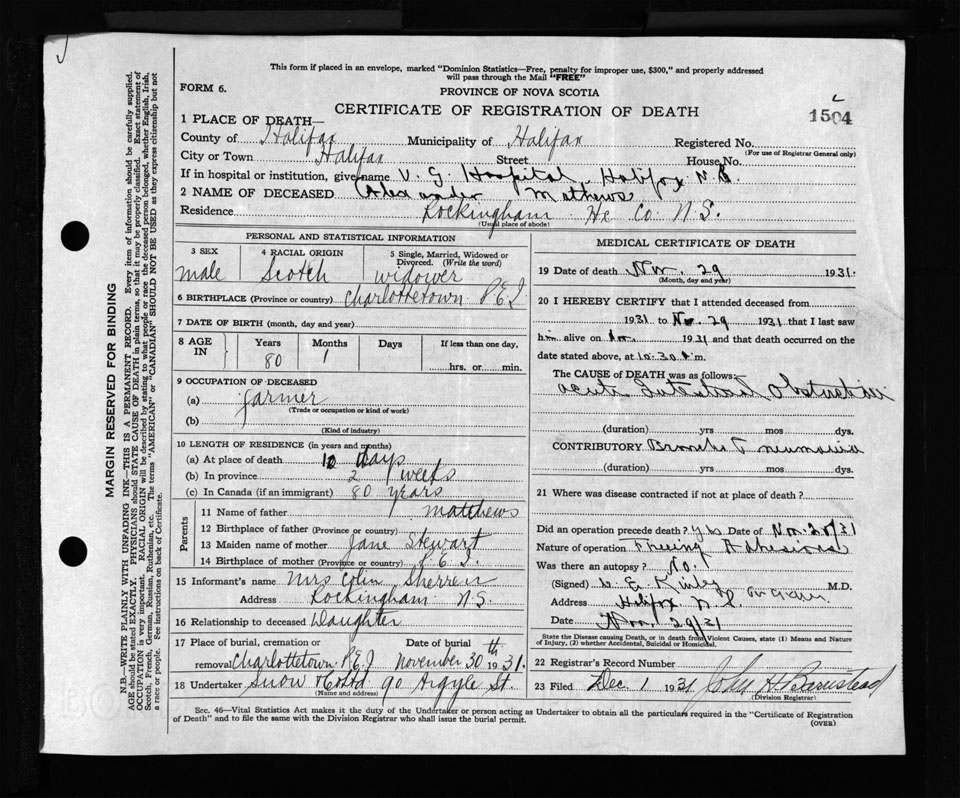 This form if placed in an envelope, marked "Dominion Statistics—Free, penalty for improper use, $300," and properly addressed
will pass through the Mail "FREE"
FORM 6.
PROVINCE OF NOVA SCOTIA
CERTIFICATE OF REGISTRATION OF DEATH
1504
1 PLACE OF DEATH—
County of Halifax Municipality of Halifax Registered No.
(For use of Registrar General only)
City or Town Halifax Street House No.
If in hospital or institution, give name V. G. Hospital, Halifax N.S.
2 NAME OF DECEASED Alexander Mathews
Residence Rockingham Hx Co. N.S.
(Usual place of abode)
PERSONAL AND STATISTICAL INFORMATION
3 SEX 4 RACIAL ORIGIN 5 Single, Married, Widowed or
Divorced. (Write the word)
male Scotch widower
6 BIRTHPLACE (Province or country) Charlottetown P.E.I
7 DATE OF BIRTH (month, day and year)
8 AGE IN Years Months Days If less than one day,
80 1 hrs. or min.
9 OCCUPATION OF DECEASED
(a) farmer
(Trade or occupation or kind of work)
(b)
(Kind of industry)
10 LENGTH OF RESIDENCE (in years and months)
(a) At place of death days
(b) In province 2 weeks
(c) In Canada (if an immigrant) 80 years
Parents
11 Name of father Matthews
12 Birthplace of father (Province or country)
13 Maiden name of mother Jane Stewart
14 Birthplace of mother (Province or country) P.E.I.
15 Informant's name Mrs Colin Sherren
Address Rockingham N.S.
16 Relationship to deceased Daughter
17 Place of burial, cremation or Date of burial
removal Charlottetown P.E.I November 30th 1931.
18 Undertaker Snow & Co Ltd 90 Argyle St.
(Name and address)
MEDICAL CERTIFICATE OF DEATH
19 Date of death Nov. 29 1931.
(Month, day and year)
20 I HEREBY CERTIFY that I attended deceased from
1931 to Nov 29 1931 that I last saw
him alive on 1931 and that death occurred on the
date stated above, at 10.30 m.
The CAUSE of DEATH was as follows:
acute Intestinal obstruction
(duration) yrs mos. dys.
CONTRIBUTORY Broncho Pneumonia
(duration) yrs mos. dys.
21 Where was disease contracted if not at place of death?
Did an operation precede death? yes Date of Nov. 20/31
Nature of operation Freeing Adhesions
Was there an autopsy? No.
(Signed) W. E. Kinley M.D.
Address Halifax N.S.
Date Nov. 29/31
State the Disease causing Death, or in death from Violent Causes, state (1) Means and Nature
of Injury, (2) whether Accidental, Suicidal or Homicidal.
22 Registrar's Record Number
23 Filed Dec 1 1931 John H Barnstead
(Division Registrar)
Sec. 46—Vital Statistics Act makes it the duty of the Undertaker or person acting as Undertaker to obtain all the particulars required in the "Certificate of Registration
of Death" and to file the same with the Division Registrar who shall issue the burial permit.
(OVER)
MARGIN RESERVED FOR BINDING
N.B.—WRITE PLAINLY WITH UNFADING INK—THIS IS A PERMANENT RECORD. Every item of information should be carefully supplied.
AGE should be stated EXACTLY. PHYSICIANS should STATE CAUSE OF DEATH in plain terms, so that it may be properly classified. Exact statement of
OCCUPATION is very important. RACIAL ORIGIN will be described by stating to what people or race the deceased person belonged, whether English, Irish,
Scotch, French, German, Russian, Ruthenian, etc. The terms "AMERICAN" or "CANADIAN" SHOULD NOT BE USED as they express citizenship but not
a race or people. See instructions on back of Certificate.